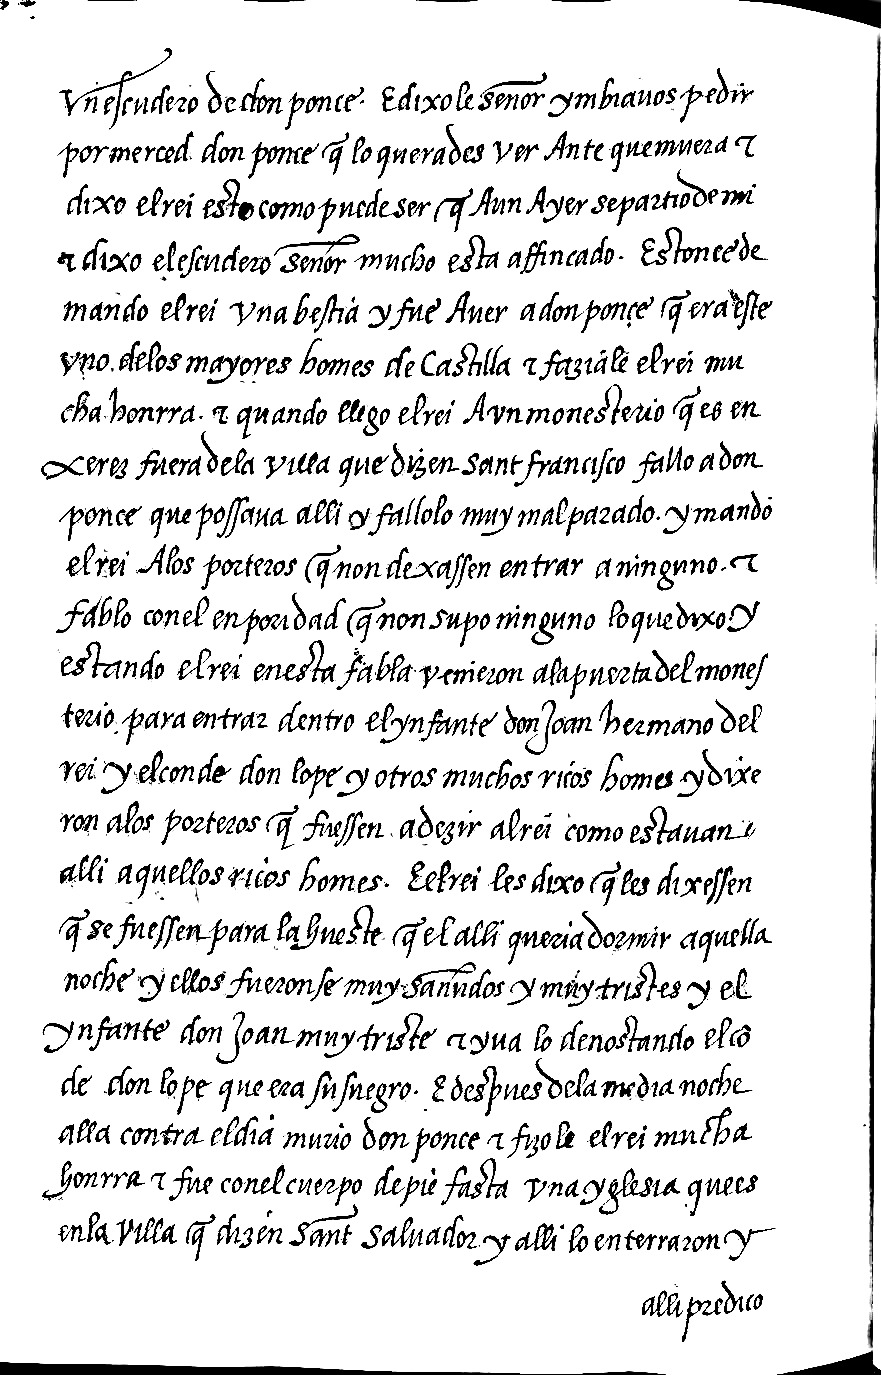 vn escudero de don ponce. E dixo le señor ymbiauos pedir
por merced don ponce q̃ lo querades ver Ante que muera ⁊
dixo el rei esto como puede ser q̃ Aun Ayer se partio de mi
⁊ dixo el escudero señor mucho esta affincado. Estonce de
mando el rei vna bestia y fue Auer a don ponçe q̃ era este
vno de los mayores homes de Castilla ⁊ faziale el rei mu
cha honrra. ⁊ quando llego el rei A vn monesterio q̃ es en
xerez fuera de la villa que dizen sant francisco fallo a don
ponce que possaua alli y fallolo muy mal parado. y mando
el rei A los porteros q̃ non dexassen entrar a ninguno. ⁊
fablo con el en poridad q̃ non supo ninguno lo que dixo. y
estando el rei en esta fabla venieron a la puerta del mones
terio para entrar dentro el ynfante don Joan hermano del
rei y el conde don lope y otros muchos ricos homes y dixe
ron a los porteros q̃ fuessen a dezir al rei como estauan
alli aquellos ricos homes. E el rei les dixo q̃ les dixessen
q̃ se fuessen para la hueste q̃ el alli queria dormir aquella
noche y ellos fueronse muy sañudos y muy tristes y el
ynfante don Joan muy triste ⁊ yua lo denostando el cõ
de don lope que era su suegro. E despues de la media noche
alla contra el dia murio don ponce ⁊ fizo le el rei mucha
honrra ⁊ fue con el cuerpo de pie fasta vna yglesia que es
en la villa q̃ dizen sant saluador y alli lo enterraron y
alli predico